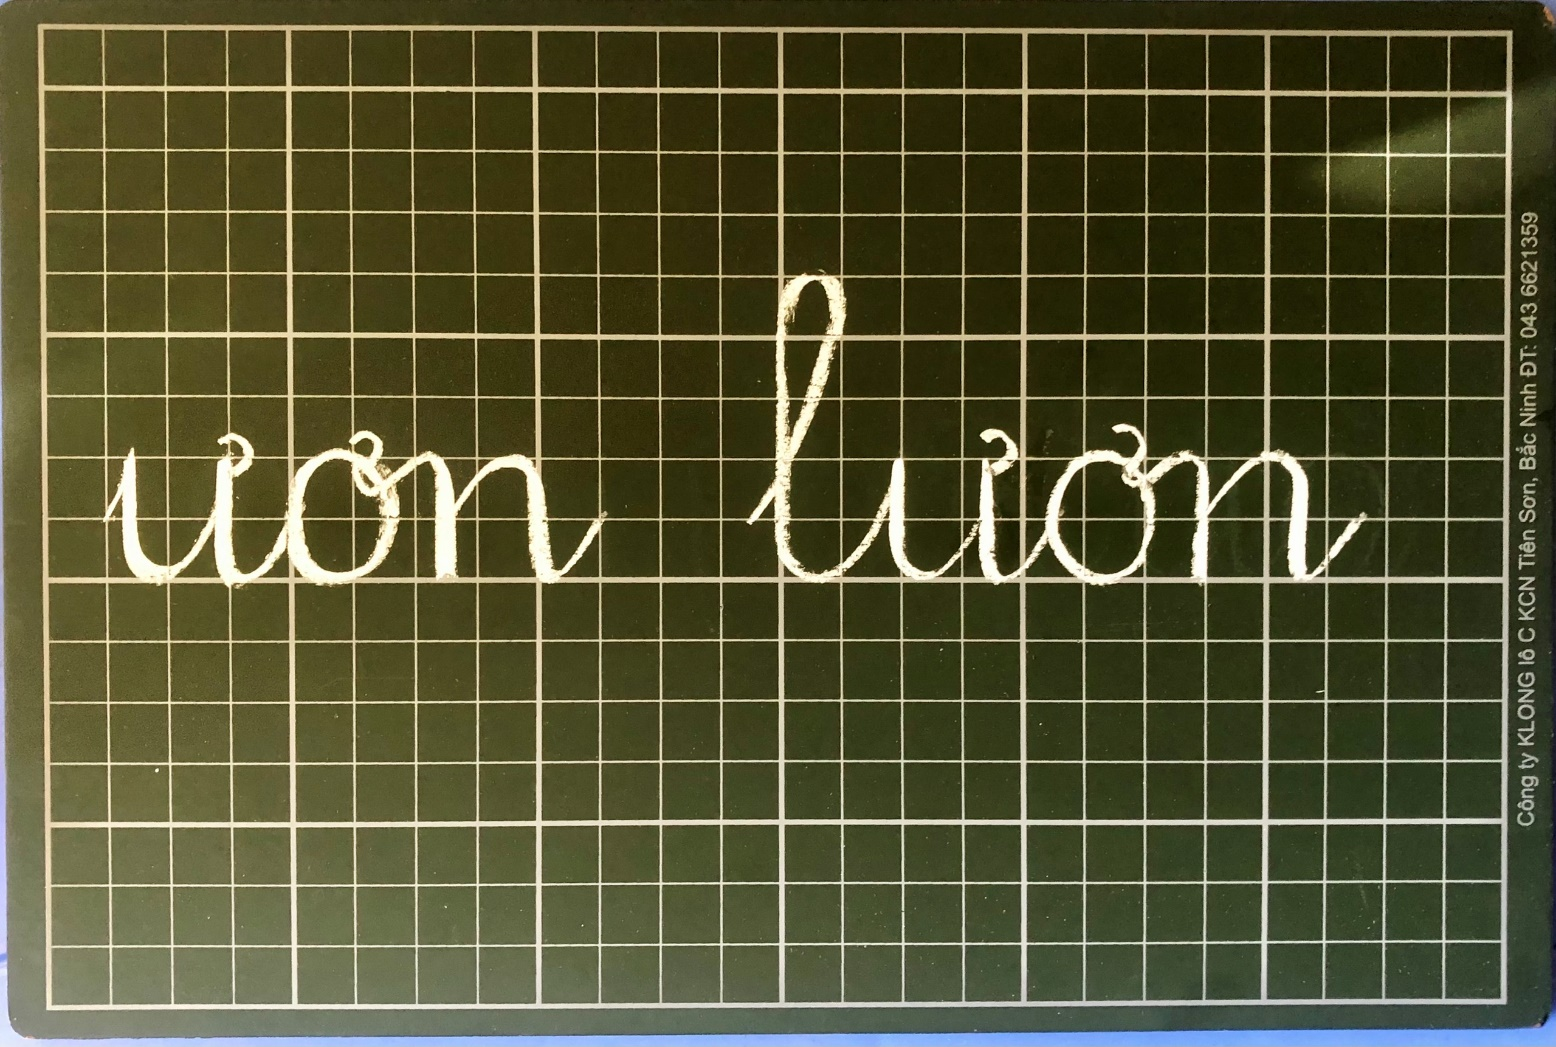 ươn lươn
Công ty KLONG lô C KCN Tiên Sơn, Bắc Ninh ĐT: 043 6621359